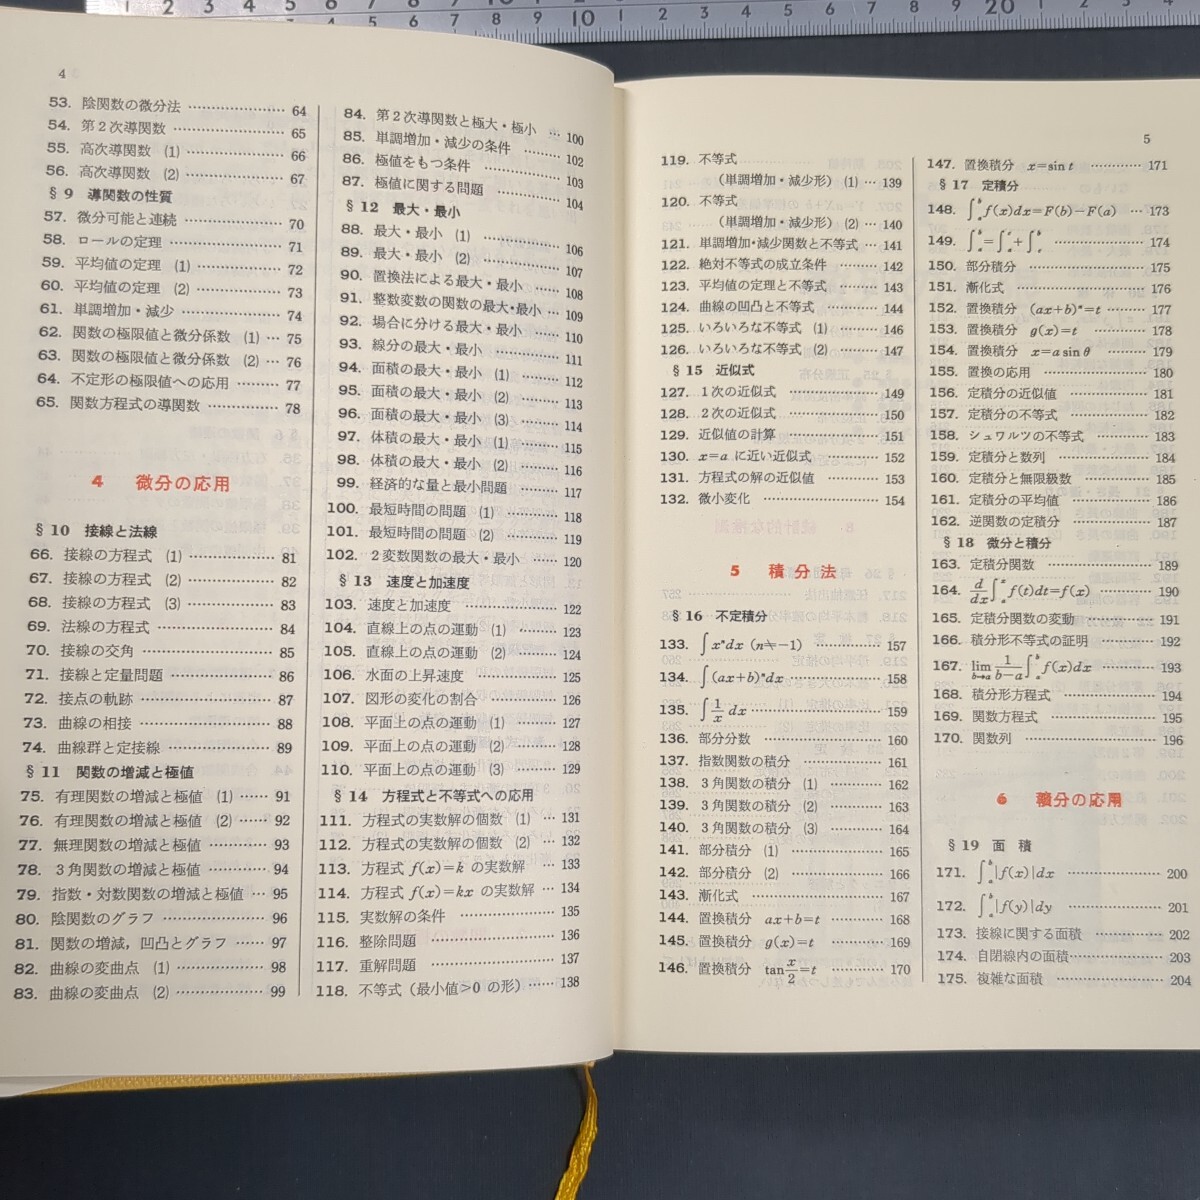 4
53. 陰関数の微分法 ………………… 64
54. 第2次導関数 ………………… 65
55. 高次導関数 (1) ………………… 66
56. 高次導関数 (2) ………………… 67
§9 導関数の性質
57. 微分可能と連続 ………………… 70
58. ロールの定理 ………………… 71
59. 平均値の定理 (1) ………………… 72
60. 平均値の定理 (2) ………………… 73
61. 単調増加・減少 ………………… 74
62. 関数の極限値と微分係数 (1) … 75
63. 関数の極限値と微分係数 (2) … 76
64. 不定形の極限値への応用 ……… 77
65. 関数方程式の導関数 …………… 78
4 微分の応用
§10 接線と法線
66. 接線の方程式 (1) ……………… 81
67. 接線の方程式 (2) ……………… 82
68. 接線の方程式 (3) ……………… 83
69. 法線の方程式 ………………… 84
70. 接線の交角 ………………… 85
71. 接線と定量問題 ………………… 86
72. 接点の軌跡 ………………… 87
73. 曲線の相接 ………………… 88
74. 曲線群と定接線 ………………… 89
§11 関数の増減と極値
75. 有理関数の増減と極値 (1) …… 91
76. 有理関数の増減と極値 (2) …… 92
77. 無理関数の増減と極値 ………… 93
78. 3角関数の増減と極値 ………… 94
79. 指数・対数関数の増減と極値 … 95
80. 陰関数のグラフ ………………… 96
81. 関数の増減,凹凸とグラフ …… 97
82. 曲線の変曲点 (1) ……………… 98
83. 曲線の変曲点 (2) ……………… 99
84. 第2次導関数と極大・極小 … 100
85. 単調増加・減少の条件 ……… 102
86. 極値をもつ条件 …………… 103
87. 極値に関する問題 ………… 104
§12 最大・最小
88. 最大・最小 (1) …………… 106
89. 最大・最小 (2) …………… 107
90. 置換法による最大・最小 …… 108
91. 整数変数の関数の最大・最小 … 109
92. 場合に分ける最大・最小 …… 110
93. 線分の最大・最小 ………… 111
94. 面積の最大・最小 (1) ……… 112
95. 面積の最大・最小 (2) ……… 113
96. 面積の最大・最小 (3) ……… 114
97. 体積の最大・最小 (1) ……… 115
98. 体積の最大・最小 (2) ……… 116
99. 経済的な量と最小問題 ……… 117
100. 最短時間の問題 (1) ……… 118
101. 最短時間の問題 (2) ……… 119
102. 2変数関数の最大・最小 …… 120
§13 速度と加速度
103. 速度と加速度 …………… 122
104. 直線上の点の運動 (1) …… 123
105. 直線上の点の運動 (2) …… 124
106. 水面の上昇速度 ………… 125
107. 図形の変化の割合 ……… 126
108. 平面上の点の運動 (1) …… 127
109. 平面上の点の運動 (2) …… 128
110. 平面上の点の運動 (3) …… 129
§14 方程式と不等式への応用
111. 方程式の実数解の個数 (1) … 131
112. 方程式の実数解の個数 (2) … 132
113. 方程式 f(x)=k の実数解 …… 133
114. 方程式 f(x)=kx の実数解 … 134
115. 実数解の条件 …………… 135
116. 整除問題 ……………… 136
117. 重解問題 ……………… 137
118. 不等式 (最小値>0 の形) …… 138
5
119. 不等式
(単調増加・減少形) (1) … 139
120. 不等式
(単調増加・減少形) (2) … 140
121. 単調増加・減少関数と不等式 … 141
122. 絶対不等式の成立条件 …… 142
123. 平均値の定理と不等式 …… 143
124. 曲線の凹凸と不等式 ……… 144
125. いろいろな不等式 (1) …… 146
126. いろいろな不等式 (2) …… 147
§15 近似式
127. 1次の近似式 …………… 149
128. 2次の近似式 …………… 150
129. 近似値の計算 …………… 151
130. x=a に近い近似式 ……… 152
131. 方程式の解の近似値 ……… 153
132. 微小変化 ……………… 154
5 積分法
§16 不定積分
133. ∫xⁿdx (n≠−1) ………… 157
134. ∫(ax+b)ⁿdx …………… 158
135. ∫1/x dx ……………… 159
136. 部分分数 ……………… 160
137. 指数関数の積分 ………… 161
138. 3角関数の積分 (1) ……… 162
139. 3角関数の積分 (2) ……… 163
140. 3角関数の積分 (3) ……… 164
141. 部分積分 (1) …………… 165
142. 部分積分 (2) …………… 166
143. 漸化式 ………………… 167
144. 置換積分 ax+b=t ……… 168
145. 置換積分 g(x)=t ……… 169
146. 置換積分 tan x/2=t ……… 170
147. 置換積分 x=sin t ……… 171
§17 定積分
148. ∫ₐᵇf(x)dx=F(b)−F(a) … 173
149. ∫ₐᵇ=∫ₐᶜ+∫꜀ᵇ …………… 174
150. 部分積分 ……………… 175
151. 漸化式 ………………… 176
152. 置換積分 (ax+b)ⁿ=t …… 177
153. 置換積分 g(x)=t ……… 178
154. 置換積分 x=a sin θ ……… 179
155. 置換の応用 …………… 180
156. 定積分の近似値 ………… 181
157. 定積分の不等式 ………… 182
158. シュワルツの不等式 ……… 183
159. 定積分と数列 …………… 184
160. 定積分と無限級数 ……… 185
161. 定積分の平均値 ………… 186
162. 逆関数の定積分 ………… 187
§18 微分と積分
163. 定積分関数 …………… 189
164. d/dx∫ₐˣf(t)dt=f(x) …… 190
165. 定積分関数の変動 ……… 191
166. 積分形不等式の証明 ……… 192
167. lim b→a 1/(b−a)∫ₐᵇf(x)dx …… 193
168. 積分形方程式 …………… 194
169. 関数方程式 …………… 195
170. 関数列 ………………… 196
6 積分の応用
§19 面積
171. ∫ₐᵇ|f(x)|dx …………… 200
172. ∫ₐᵇ|f(y)|dy …………… 201
173. 接線に関する面積 ……… 202
174. 自閉線内の面積 ………… 203
175. 複雑な面積 …………… 204